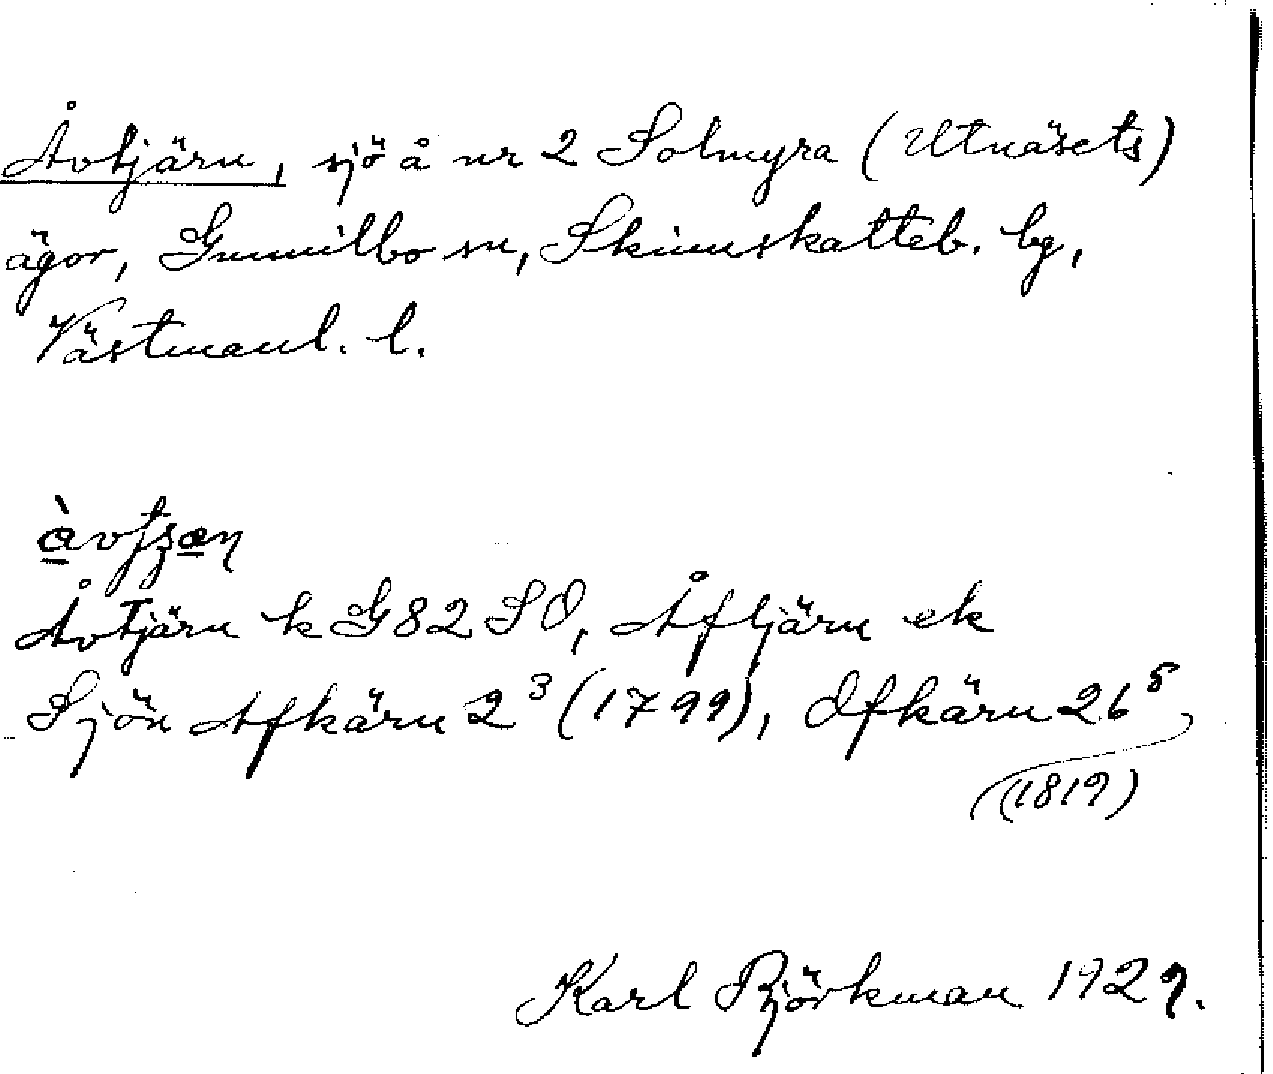 Åvtjärn, sjö å nr 2 Solmyra (Utnäsets)
ägor, Gunnilbo sn, Skinnskatteb. bg,
Västmanl. l.
Åvtjärn k G82SO, Åftjärn ek
Sjön Afkärn 2³ (1799), Ofkärn 26⁵
(1819)
Karl Björkman 1929.